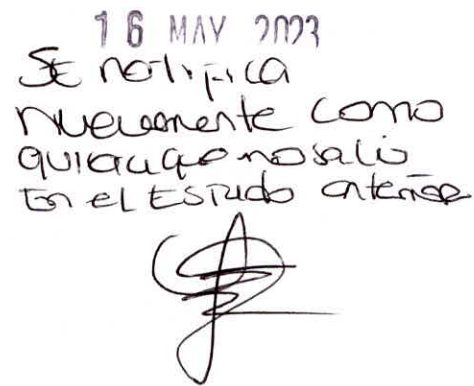 16 MAY 2023
SE notifica
nuevamente como
quiera que no salio
En el ESTADO anterior